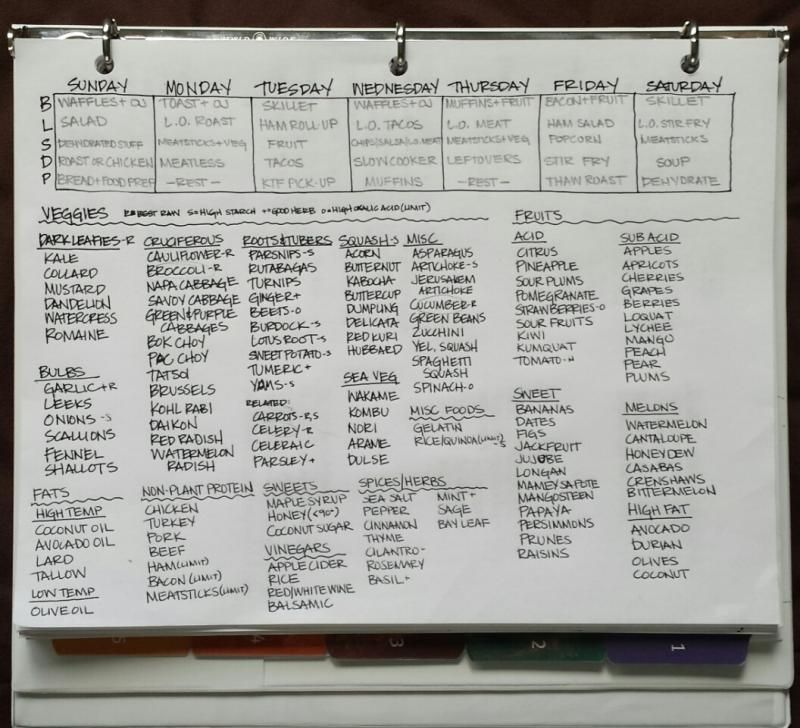 SUNDAY MONDAY TUESDAY WEDNESDAY THURSDAY FRIDAY SATURDAY
B WAFFLES + OJ TOAST + OJ SKILLET WAFFLES + OJ MUFFINS + FRUIT BACON + FRUIT SKILLET
L SALAD L.O. ROAST HAM ROLL-UP L.O. TACOS L.O. MEAT HAM SALAD L.O. STIR FRY
S DEHYDRATED STUFF MEATSTICKS + VEG FRUIT CHIPS/SALSA/L.O. MEAT MEATSTICKS + VEG POPCORN MEATSTICKS
D ROAST OR CHICKEN MEATLESS TACOS SLOW COOKER LEFTOVERS STIR FRY SOUP
P BREAD + FOOD PREP -REST- KTF PICK-UP MUFFINS -REST- THAW ROAST DEHYDRATE
VEGGIES R=BEST RAW S=HIGH STARCH +=GOOD HERB O=HIGH OXALIC ACID (LIMIT)
DARK LEAFIES-R
KALE
COLLARD
MUSTARD
DANDELION
WATERCRESS
ROMAINE
BULBS
GARLIC + R
LEEKS
ONIONS -S
SCALLIONS
FENNEL
SHALLOTS
CRUCIFEROUS
CAULIFLOWER-R
BROCCOLI-R
NAPA CABBAGE
SAVOY CABBAGE
GREEN & PURPLE
CABBAGES
BOK CHOY
PAC CHOY
TATSOI
BRUSSELS
KOHL RABI
DAIKON
RED RADISH
WATERMELON
RADISH
ROOTS & TUBERS
PARSNIPS-S
RUTABAGAS
TURNIPS
GINGER+
BEETS-O
BURDOCK-S
LOTUS ROOT-S
SWEET POTATO-S
TUMERIC +
YAMS-S
RELATED:
CARROTS-R,S
CELERY-R
CELERAIC
PARSLEY +
SQUASH-S
ACORN
BUTTERNUT
KABOCHA
BUTTERCUP
DUMPLING
DELICATA
RED KURI
HUBBARD
SEA VEG
WAKAME
KOMBU
NORI
ARAME
DULSE
MISC
ASPARAGUS
ARTICHOKE-S
JERUSALEM
ARTICHOKE
CUCUMBER-R
GREEN BEANS
ZUCCHINI
YEL. SQUASH
SPAGHETTI
SQUASH
SPINACH-O
MISC FOODS
GELATIN
RICE/QUINOA (LIMIT)
-S
FRUITS
ACID
CITRUS
PINEAPPLE
SOUR PLUMS
POMEGRANATE
STRAWBERRIES-O
SOUR FRUITS
KIWI
KUMQUAT
TOMATO-N
SWEET
BANANAS
DATES
FIGS
JACKFRUIT
JUJUBE
LONGAN
MAMEY SAPOTE
MANGOSTEEN
PAPAYA
PERSIMMONS
PRUNES
RAISINS
SUB ACID
APPLES
APRICOTS
CHERRIES
GRAPES
BERRIES
LOQUAT
LYCHEE
MANGO
PEACH
PEAR
PLUMS
MELONS
WATERMELON
CANTALOUPE
HONEYDEW
CASABAS
CRENSHAWS
BITTERMELON
HIGH FAT
AVOCADO
DURIAN
OLIVES
COCONUT
FATS
HIGH TEMP
COCONUT OIL
AVOCADO OIL
LARD
TALLOW
LOW TEMP
OLIVE OIL
NON-PLANT PROTEIN
CHICKEN
TURKEY
PORK
BEEF
HAM (LIMIT)
BACON (LIMIT)
MEATSTICKS (LIMIT)
SWEETS
MAPLE SYRUP
HONEY (<90°)
COCONUT SUGAR
VINEGARS
APPLE CIDER
RICE
RED/WHITE WINE
BALSAMIC
SPICES/HERBS
SEA SALT
PEPPER
CINNAMON
THYME
CILANTRO-
ROSEMARY
BASIL+
MINT+
SAGE
BAY LEAF
5 4 3 2 1